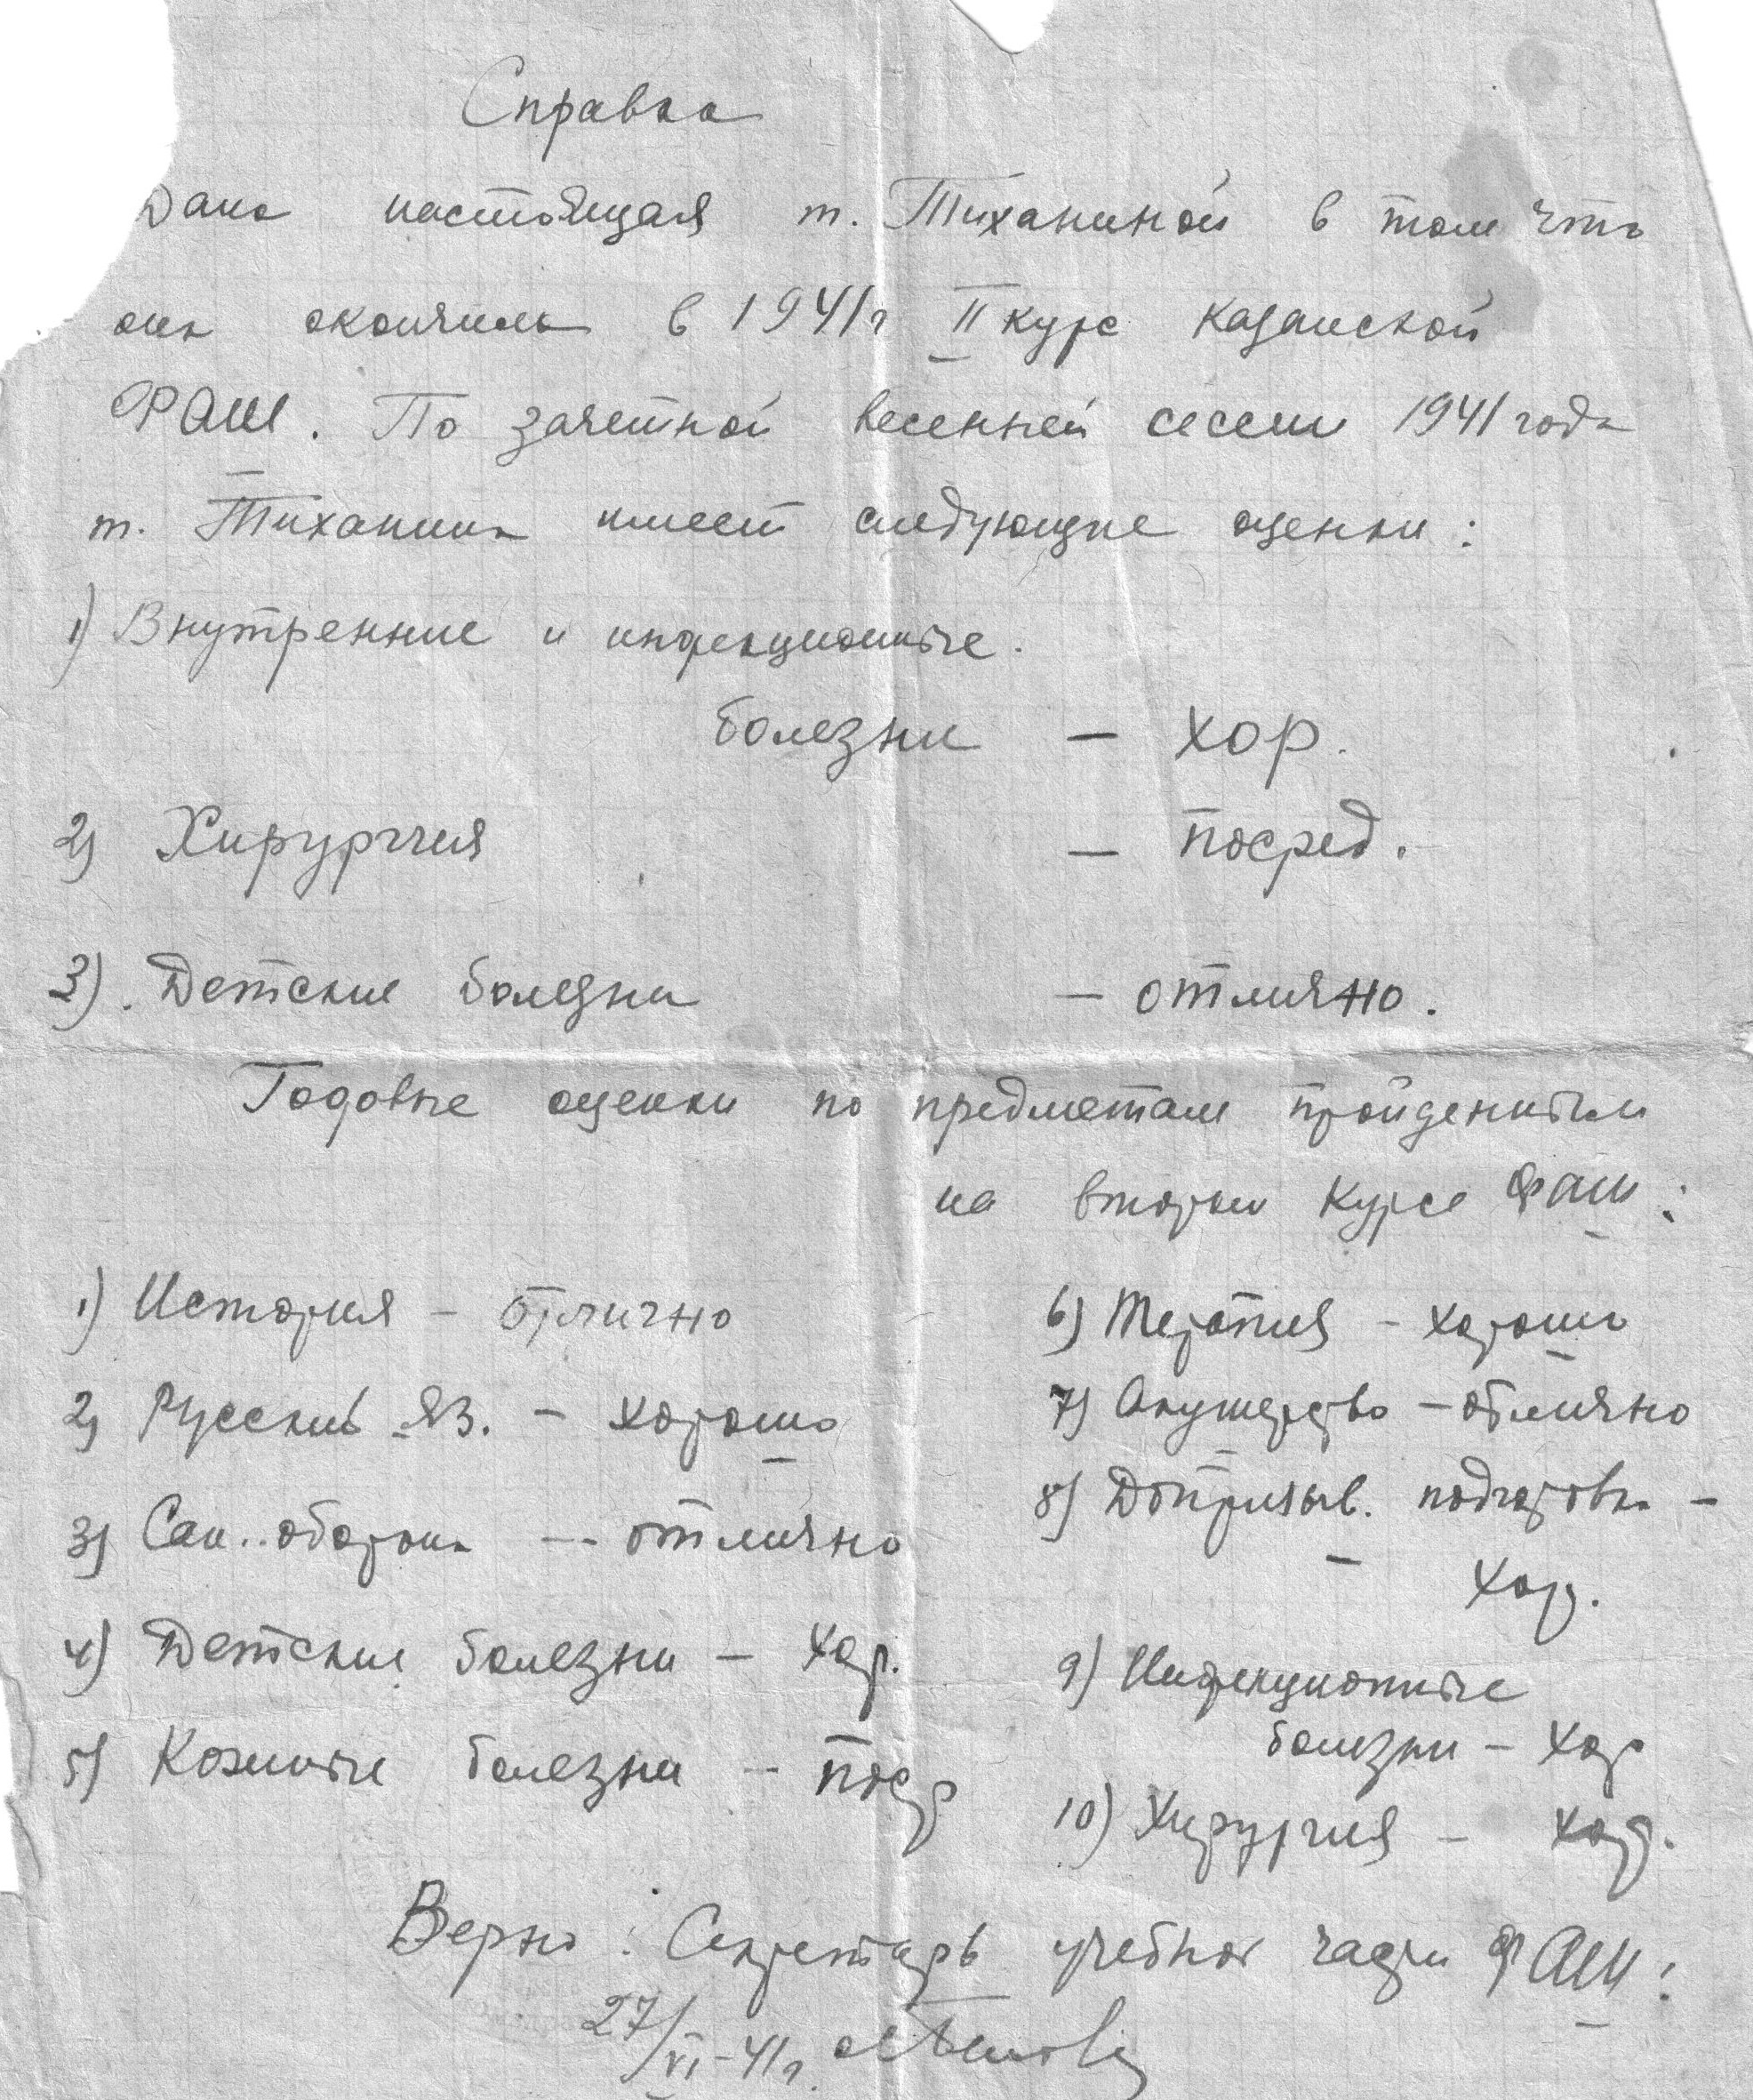 Справка
Дана настоящая т. Тиханиной в том что
она окончила в 1941г II курс Казанской
ФАШ. По зачетной весенней сесии 1941 года
т. Тиханина имеет следующие оценки:
1) Внутренние и инфекционные.
болезни — хор.
2) Хирургия — посред.
3). Детские болезни — отлично.
Годовые оценки по предметам пройденным
на втором курсе ФАШ:
1) История — отлично
2) Русский яз. — хорошо
3) Сан. оборона — отлично
4) Детские болезни — хор.
5) Кожные болезни — поср
6) Терапия — хорошо
7) Акушерство — отлично
8) Допризыв. подготовка —
хор.
9) Инфекционные
болезни — хор
10) Хирургия — хор.
Верно: Секретарь учебной части ФАШ:
27/VI-41г.